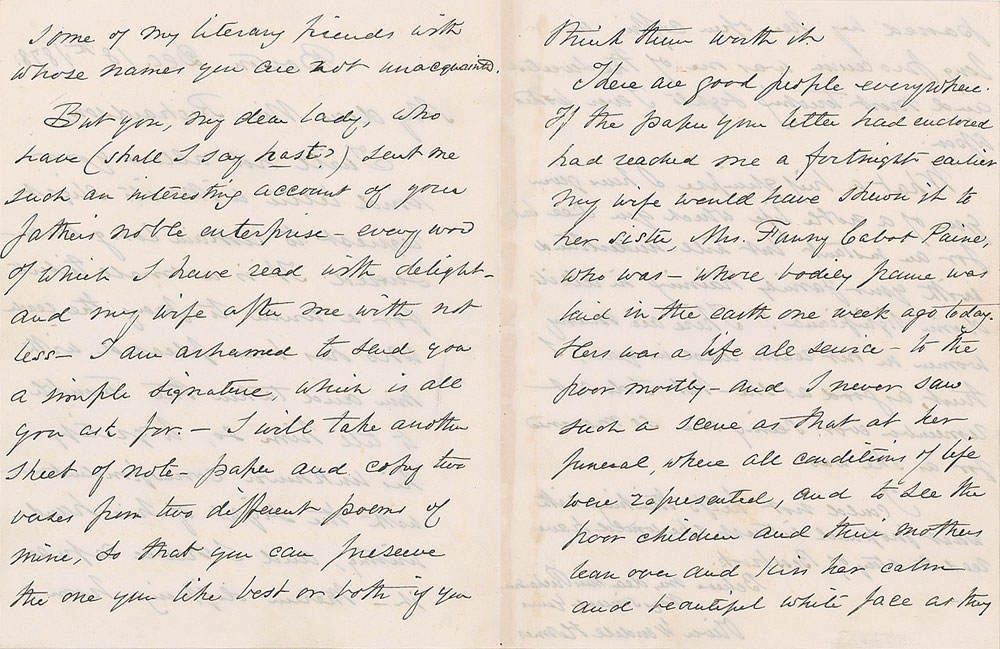 some of my literary friends with
whose names you are not unacquainted.
But you, my dear lady, who
have (shall I say hast?) sent me
such an interesting account of your
father's noble enterprise – every word
of which I have read with delight –
and my wife after me with not
less – I am ashamed to send you
a simple signature, which is all
you ask for. – I will take another
sheet of note-paper and copy two
verses from two different poems of
mine, so that you can preserve
the one you like best or both if you
think them worth it.
There are good people everywhere.
If the paper your letter had enclosed
had reached me a fortnight earlier
my wife would have shewn it to
her sister, Mrs. Fanny Cabot Paine,
who was – whose bodily frame was
laid in the earth one week ago today.
Hers was a life all service – to the
poor mostly – and I never saw
such a scene as that at her
funeral, where all conditions of life
were represented, and to see the
poor children and their mothers
lean over and kiss her calm
and beautiful white face as they